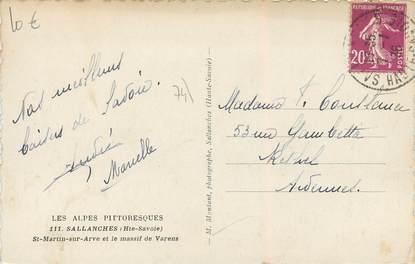 10 €
Nos meilleurs
baisers de Savoie.
André
Marcelle
74)
LES ALPES PITTORESQUES
111. SALLANCHES (Hte-Savoie)
St-Martin-sur-Arve et le massif de Varens
— M. Montant, photographe, Sallanches (Haute-Savoie) —
REPUBLIQUE FRANÇAISE
20
Madame
53 rue Gambetta
Rethel
Ardennes